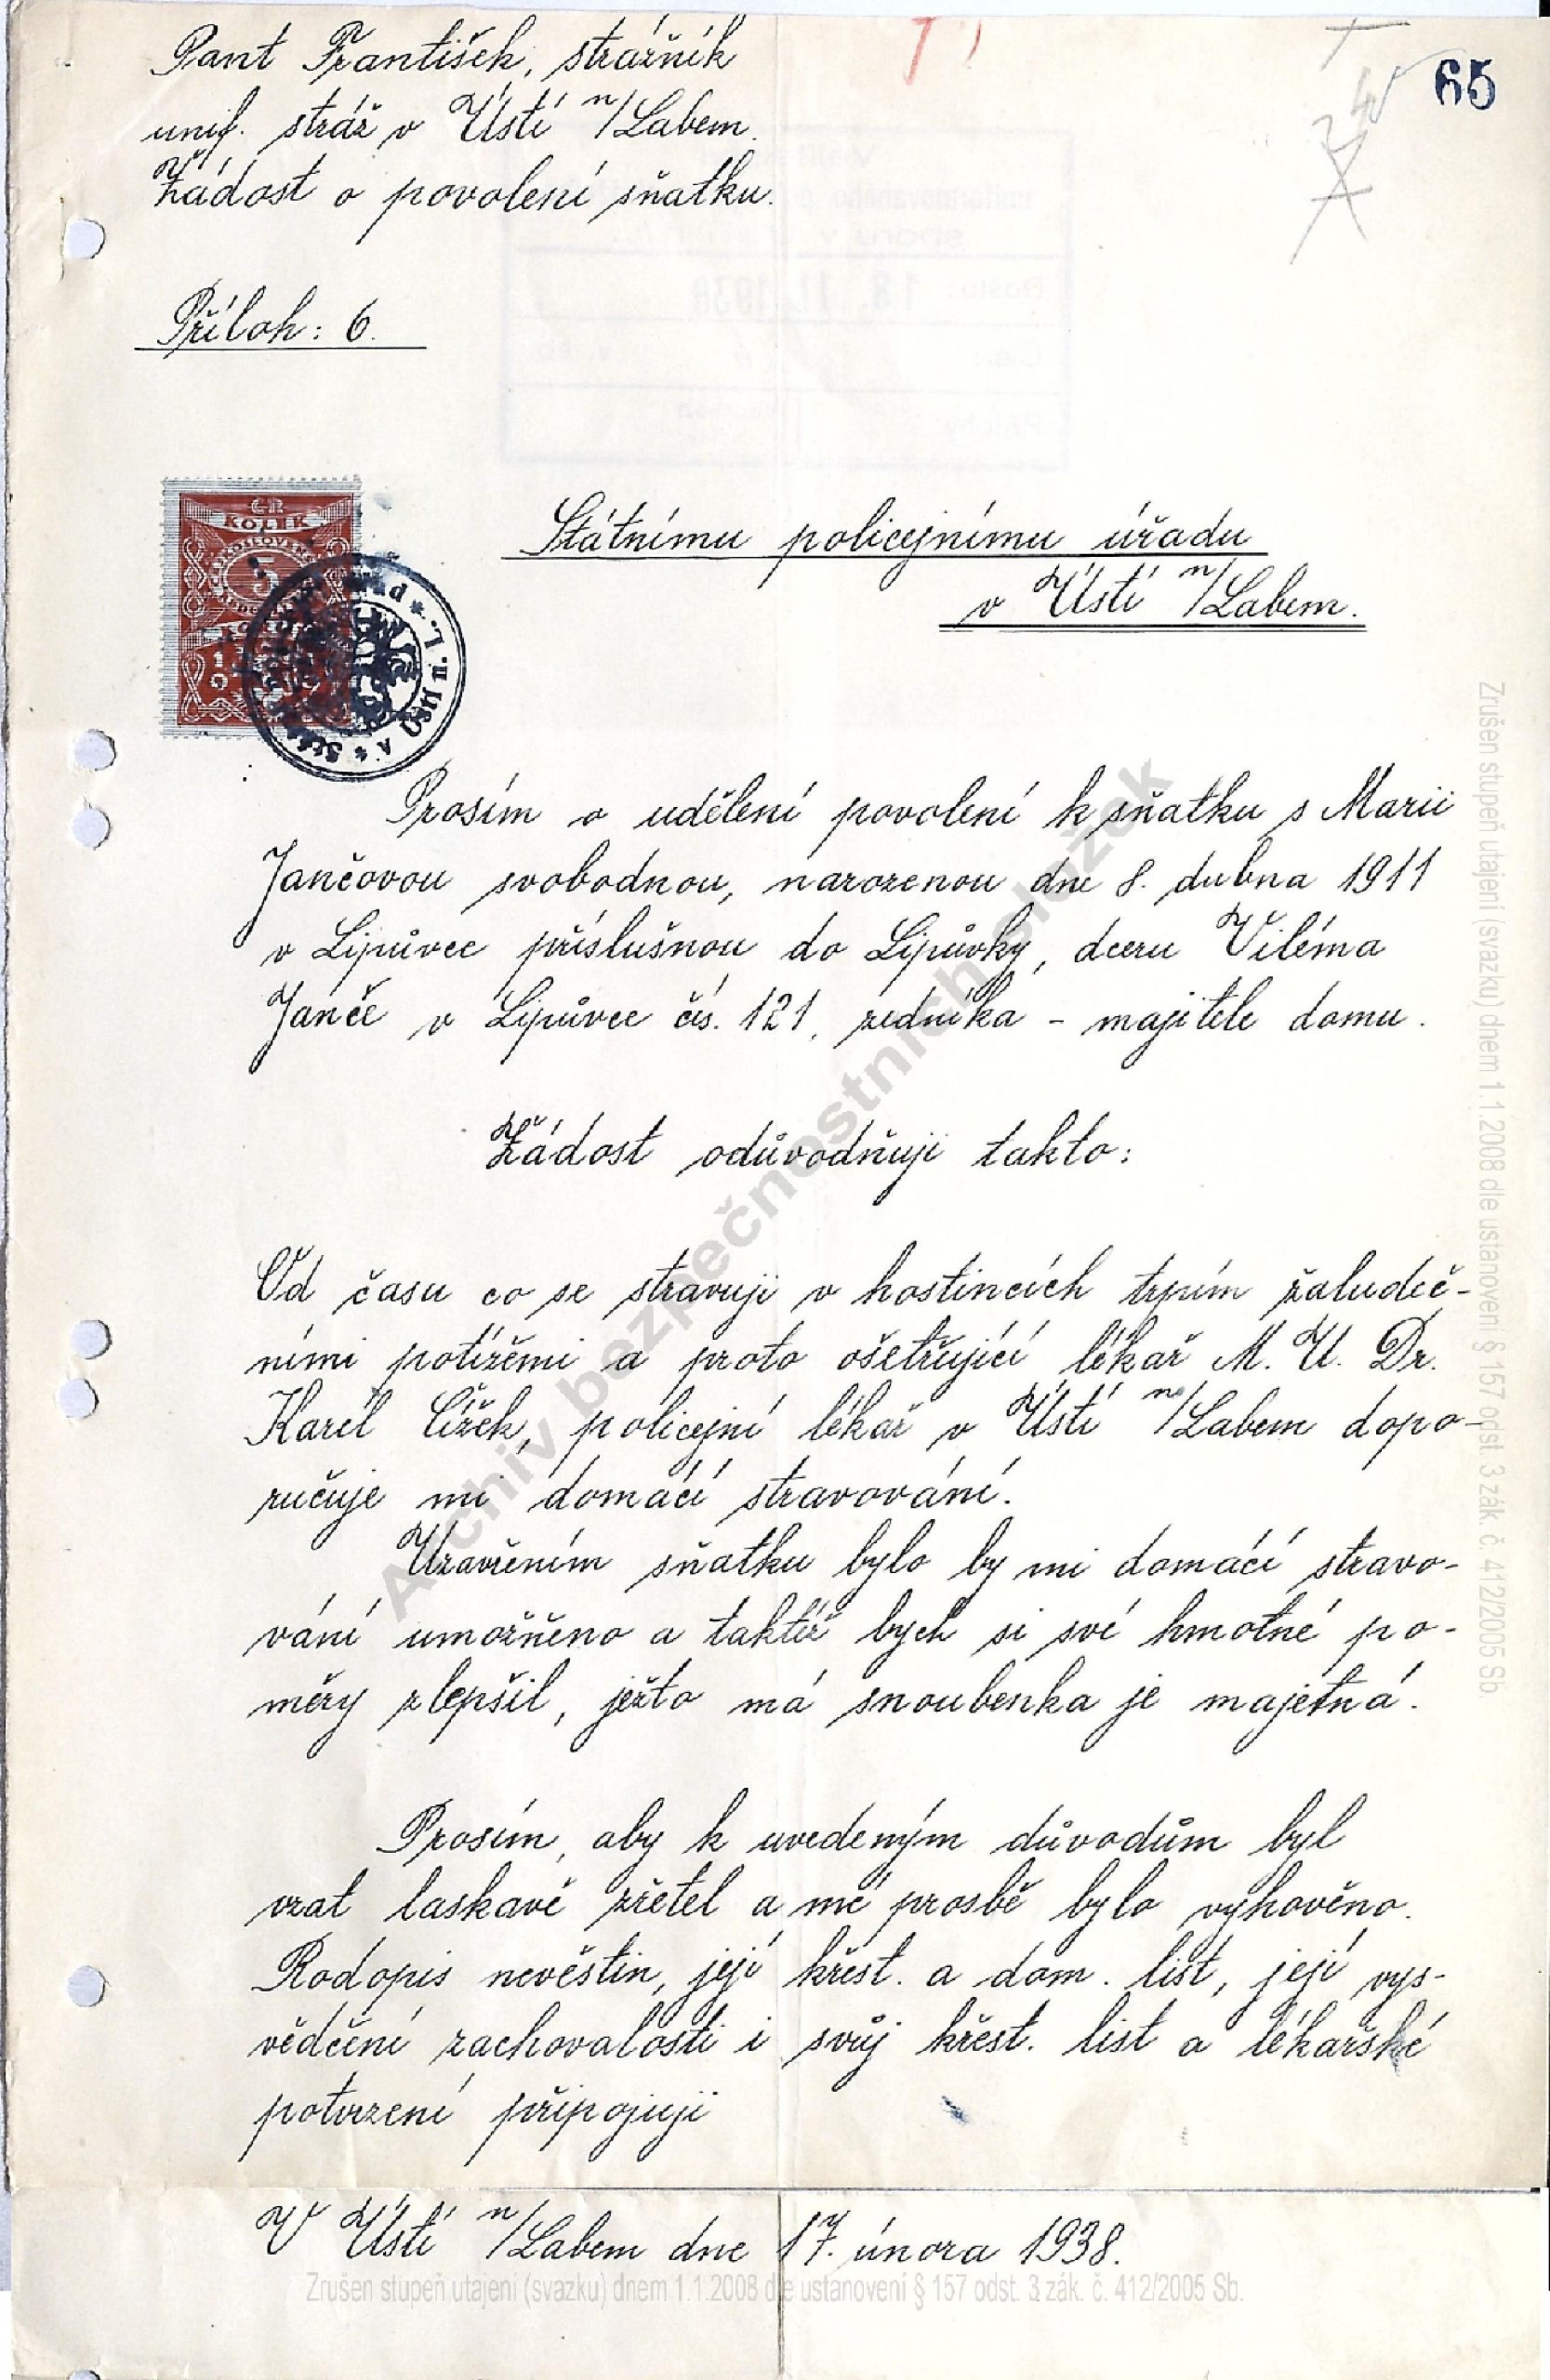 Pant František, strážník
unif. stráž v Ústí n/Labem.
Žádost o povolení sňatku.
65
Příloh: 6.
KOLEK
5
Státnímu policejnímu úřadu
v Ústí n/Labem.
v Ústí n. L.
Prosím o udělení povolení k sňatku s Marii
Jančovou svobodnou, narozenou dne 8. dubna 1911
v Lipůvce příslušnou do Lipůvky, dceru Viléma
Janče v Lipůvce čís. 121, zedníka - majitele domu.
Žádost odůvodňuji takto:
Od času co se stravuji v hostincích trpím žaludeč-
ními potížemi a proto ošetřující lékař M. U. Dr.
Karel Čížek, policejní lékař v Ústí n/Labem dopo-
ručuje mi domácí stravování.
Uzavřením sňatku bylo by mi domácí stravo-
vání umožněno a taktéž bych si své hmotné po-
měry zlepšil, ježto má snoubenka je majetná.
Prosím, aby k uvedeným důvodům byl
vzat laskavě zřetel a mé prosbě bylo vyhověno.
Rodopis nevěstin, její křest. a dom. list, její vys-
vědčení zachovalosti i svůj křest. list a lékařské
potvrzení připojuji
V Ústí n/Labem dne 17. února 1938.
Zrušen stupeň utajení (svazku) dnem 1.1.2008 dle ustanovení § 157 odst. 3 zák. č. 412/2005 Sb.
Zrušen stupeň utajení (svazku) dnem 1.1.2008 dle ustanovení § 157 odst. 3 zák. č. 412/2005 Sb.
Archiv bezpečnostních složek